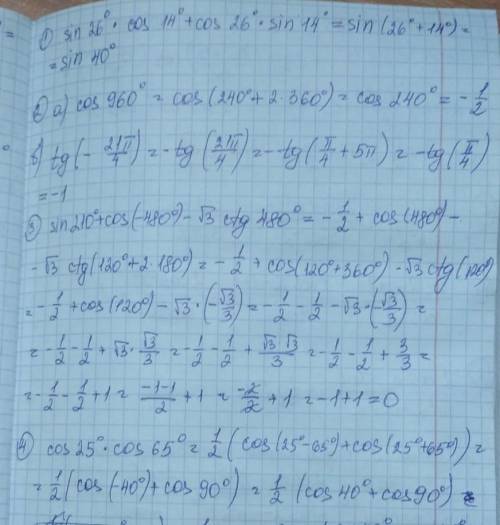 ① sin 26° · cos 14° + cos 26° · sin 14° = sin (26° + 14°) =
= sin 40°
② а) cos 960° = cos (240° + 2 · 360°) = cos 240° = - 1/2
б) tg (- 21π/4) = - tg (21π/4) = - tg (π/4 + 5π) = - tg (π/4)
= -1
③ sin 210° + cos (-480°) - √3 ctg 480° = - 1/2 + cos (480°) -
- √3 ctg (120° + 2 · 180°) = - 1/2 + cos (120° + 360°) - √3 ctg (120°)
= - 1/2 + cos (120°) - √3 · (- √3/3) = - 1/2 - 1/2 - √3 · (- √3/3) =
= - 1/2 - 1/2 + √3 · √3/3 = - 1/2 - 1/2 + √3 · √3/3 = - 1/2 - 1/2 + 3/3 =
= - 1/2 - 1/2 + 1 = -1-1/2 + 1 = -2/2 + 1 = -1 + 1 = 0
④ cos 25° · cos 65° = 1/2 (cos (25° - 65°) + cos (25° + 65°)) =
= 1/2 (cos (-40°) + cos 90°) = 1/2 (cos 40° + cos 90°) =